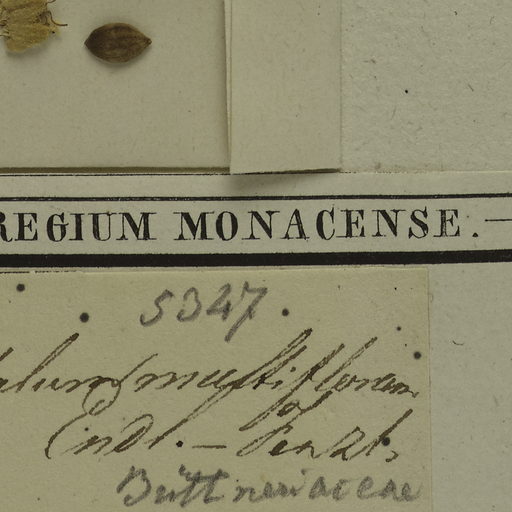 REGIUM MONACENSE.
5347.
multiflorum
Endl. – Fenzl.
Büttneriaceae